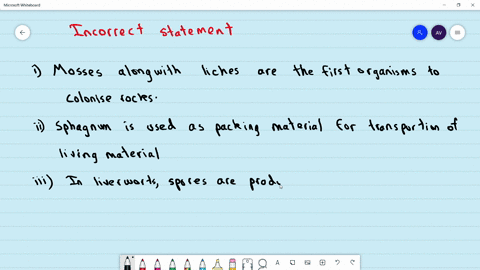 Microsoft Whiteboard
Incorrect statement
AV
i) Mosses alongwith liches are the first organisms to
colonise rocks.
ii) Sphagnum is used as packing material for transportion of
living material
iii) In liverworts, spores are produ